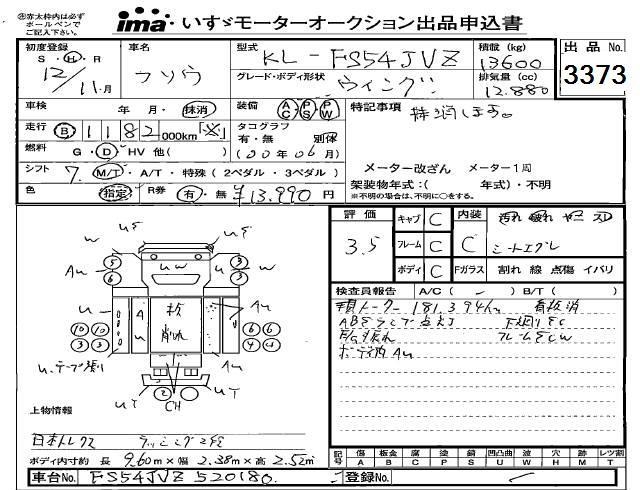 ㊟赤太枠内は必ず
ボールペンで
ご記入下さい。
ima いすゞモーターオークション出品申込書
初度登録
S・H・R
12/11月
車名
フソウ
型式
KL-FS54JVZ
グレード・ボディ形状
ウイング
積載(kg)
13600
排気量(cc)
12.880
出品No.
3373
車検
年 月・抹消
装備
AC PS PW
特記事項
抹消します。
走行
B 1182 000km「※」
タコグラフ
有・無 別体
(00年06月)
燃料
G・D・HV 他( )
シフト
7. M/T・A/T・特殊(2ペダル・3ペダル)
メーター改ざん メーター1周
架装物年式:( 年式)・不明
※不明の場合は、不明に○をする。
色
指定
R券 有・無 ¥13,990円
評価
3.5
キャブ C
フレーム C
ボディ C
内装
C
汚れ 破れ ヤニ スレ
シートエグレ
Fガラス 割れ 線 点傷 イバリ
検査員報告 A/C( - ) B/T( )
181,394km
ABSランプ点灯
ボディ内 Au
上物情報
日本トレクス
ラッシング2段
ボディ内寸約 長 9.60m×幅 2.38m×高 2.52m
記号 傷 板金 腐 塗 錆 凹凸曲 波 穴 跡 レツ割
A B C P S U W H M T
車台No. FS54JVZ 520180
登録No.